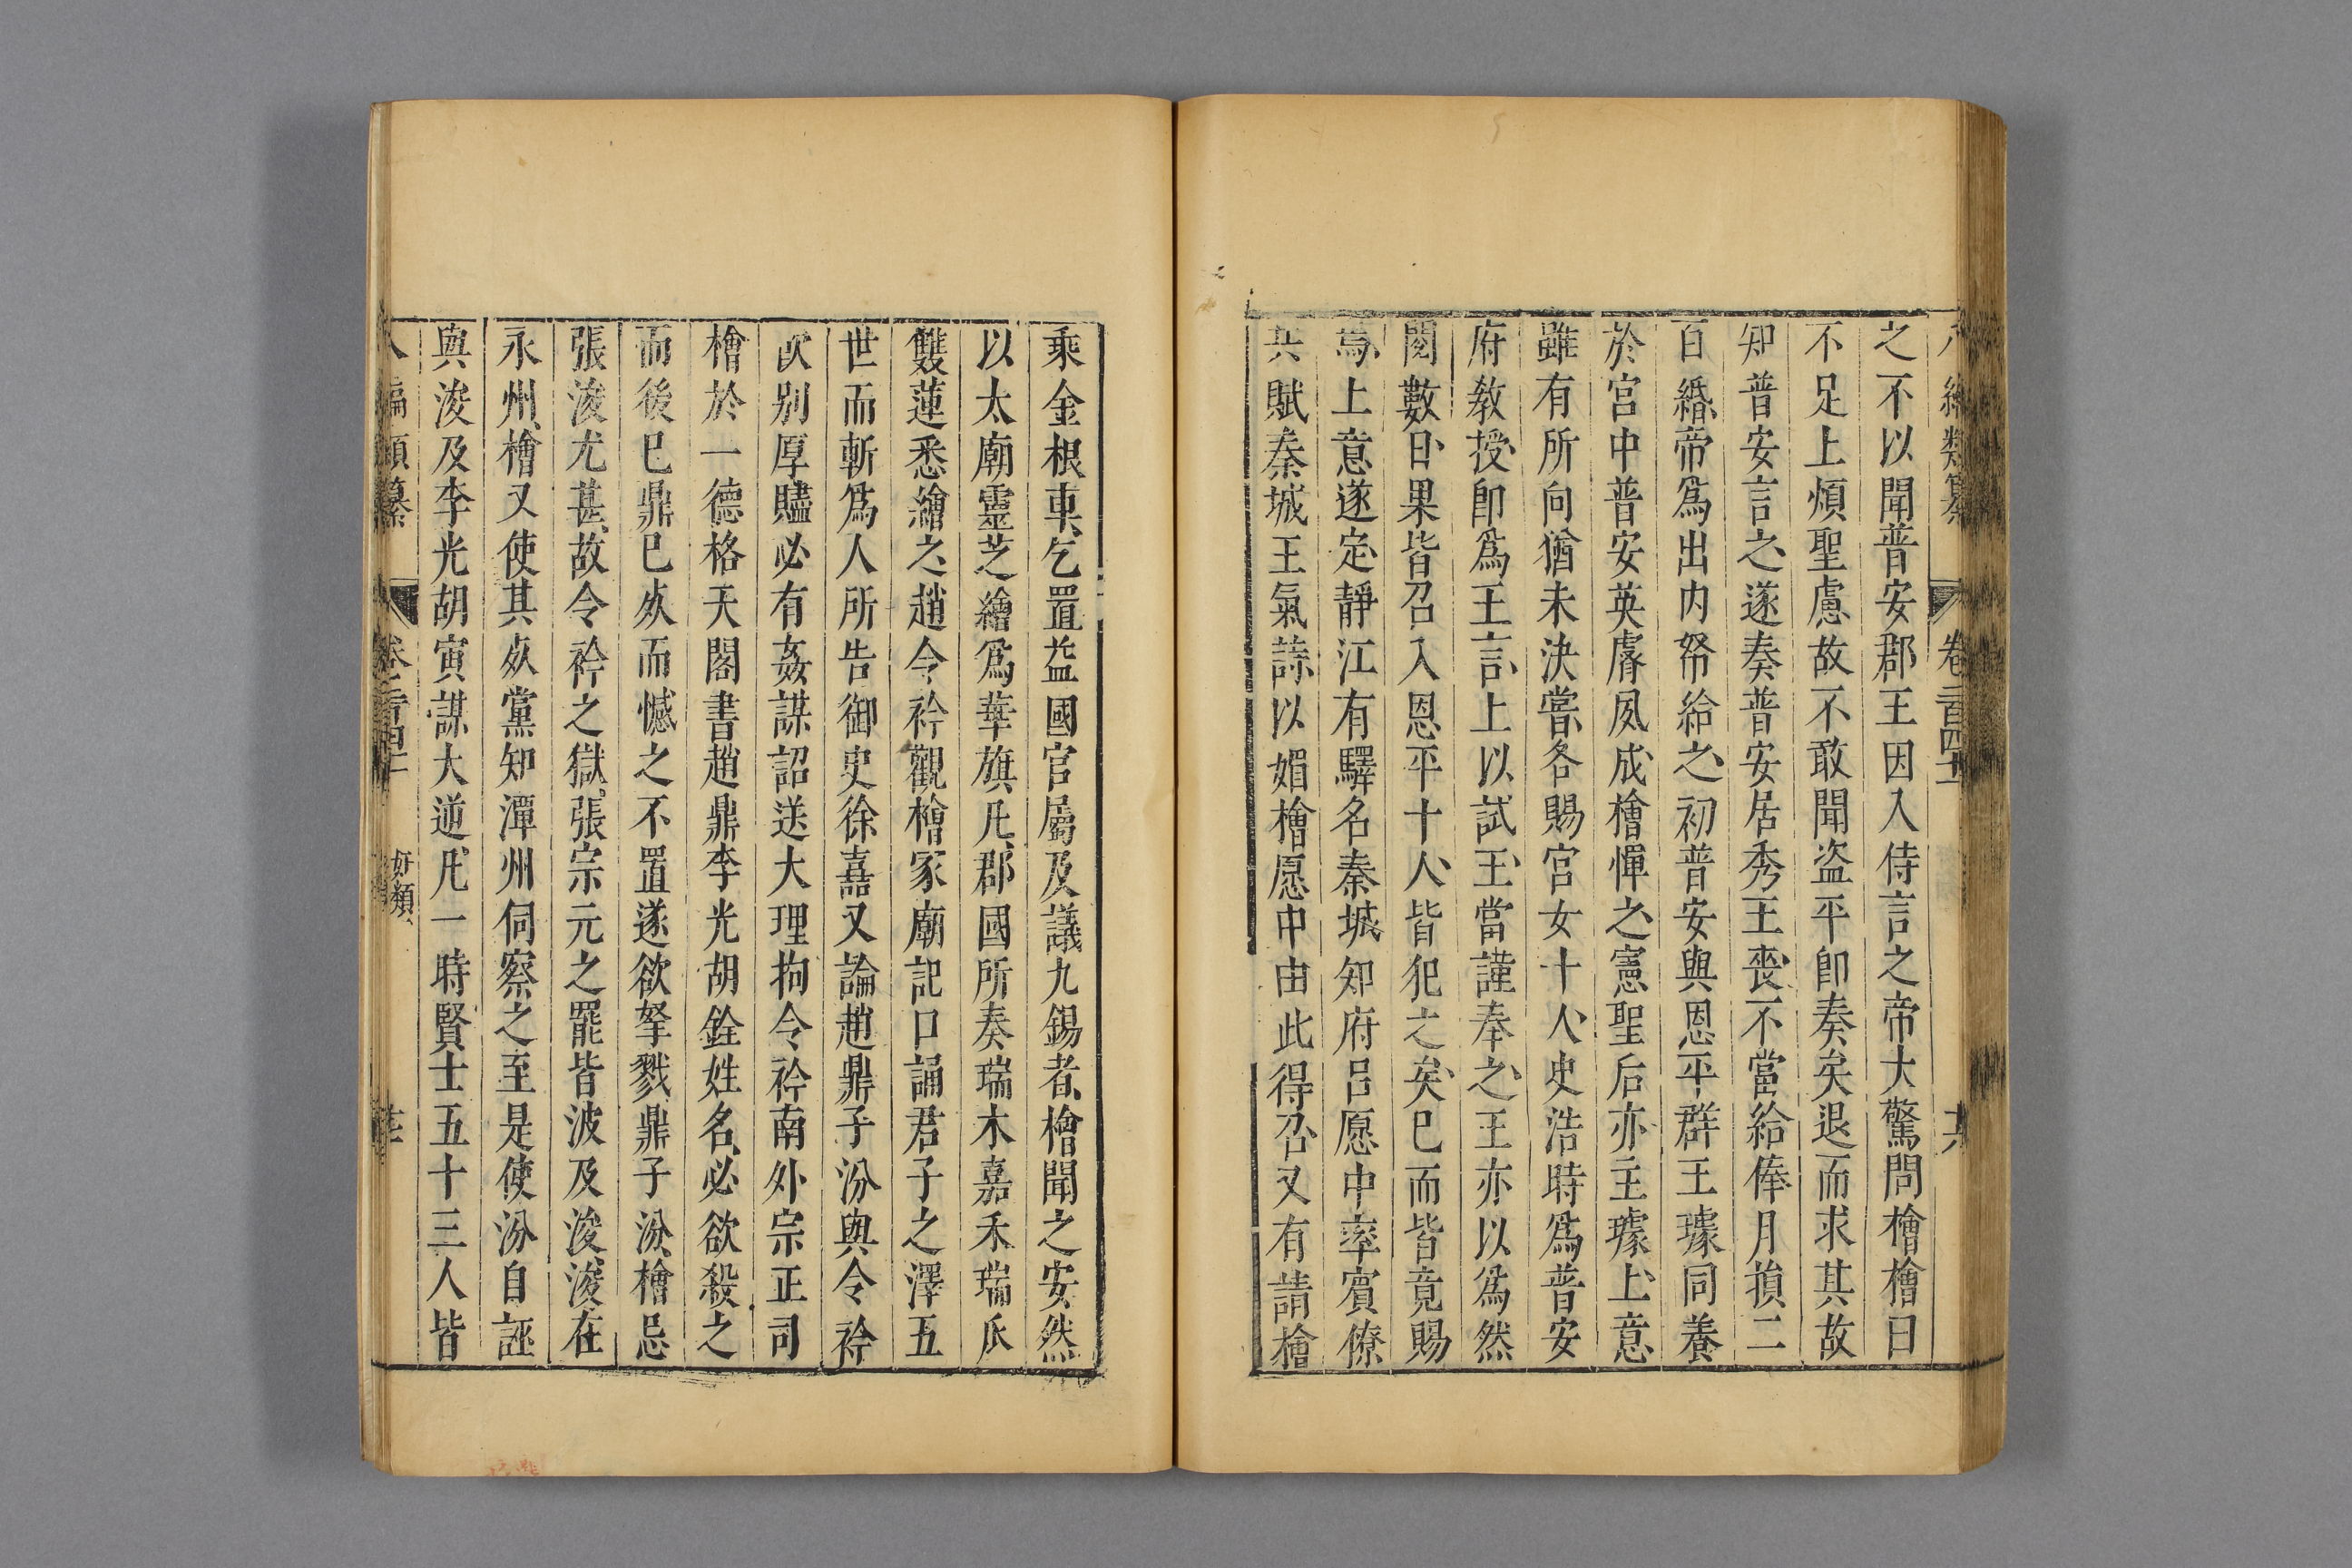 編類纂 卷二百四十
之不以聞普安郡王因入侍言之帝大驚問檜檜曰
不足上煩聖慮故不敢聞盜平卽奏矣退而求其故
知普安言之遂奏普安居秀王喪不當給俸月損二
百緡帝爲出内帑給之初普安與恩平群王璩同養
於宮中普安英睿夙成檜憚之憲聖后亦主璩上意
雖有所向猶未決嘗各賜宮女十人史浩時爲普安
府教授卽爲王言上以試王王當謹奉之王亦以爲然
閱數日果皆召入恩平十人皆犯之矣已而皆竟賜
焉上意遂定靜江有驛名秦城知府呂愿中率賓僚
共賦秦城王氣詩以媚檜愿中由此得召又有請檜
乘金根車乞置益國官屬及議九錫者檜聞之安然
以太廟靈芝繪爲華旗凡郡國所奏瑞木嘉禾瑞瓜
雙蓮悉繪之趙令衿觀檜家廟記口誦君子之澤五
世而斬爲人所告御史徐嘉又論趙鼎子汾與令衿
飲别厚贐必有姦謀詔送大理拘令衿南外宗正司
檜於一德格天閣書趙鼎李光胡銓姓名必欲殺之
而後已鼎已㱙而憾之不置遂欲孥戮鼎子汾檜忌
張浚尤甚故令衿之獄張宗元之罷皆波及浚浚在
永州檜又使其㱙黨知潭州伺察之至是使汾自誣
與浚及李光胡寅謀大逆凡一時賢士五十三人皆
八編類纂 卷二百四十 奸類